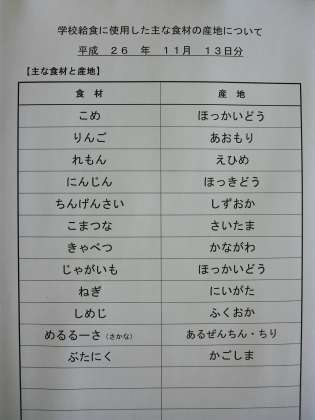 学校給食に使用した主な食材の産地について
平成 26 年 11月 13日分
【主な食材と産地】
食 材 産 地
こめ ほっかいどう
りんご あおもり
れもん えひめ
にんじん ほっきどう
ちんげんさい しずおか
こまつな さいたま
きゃべつ かながわ
じゃがいも ほっかいどう
ねぎ にいがた
しめじ ふくおか
めるるーさ(さかな) あるぜんちん・ちり
ぶたにく かごしま